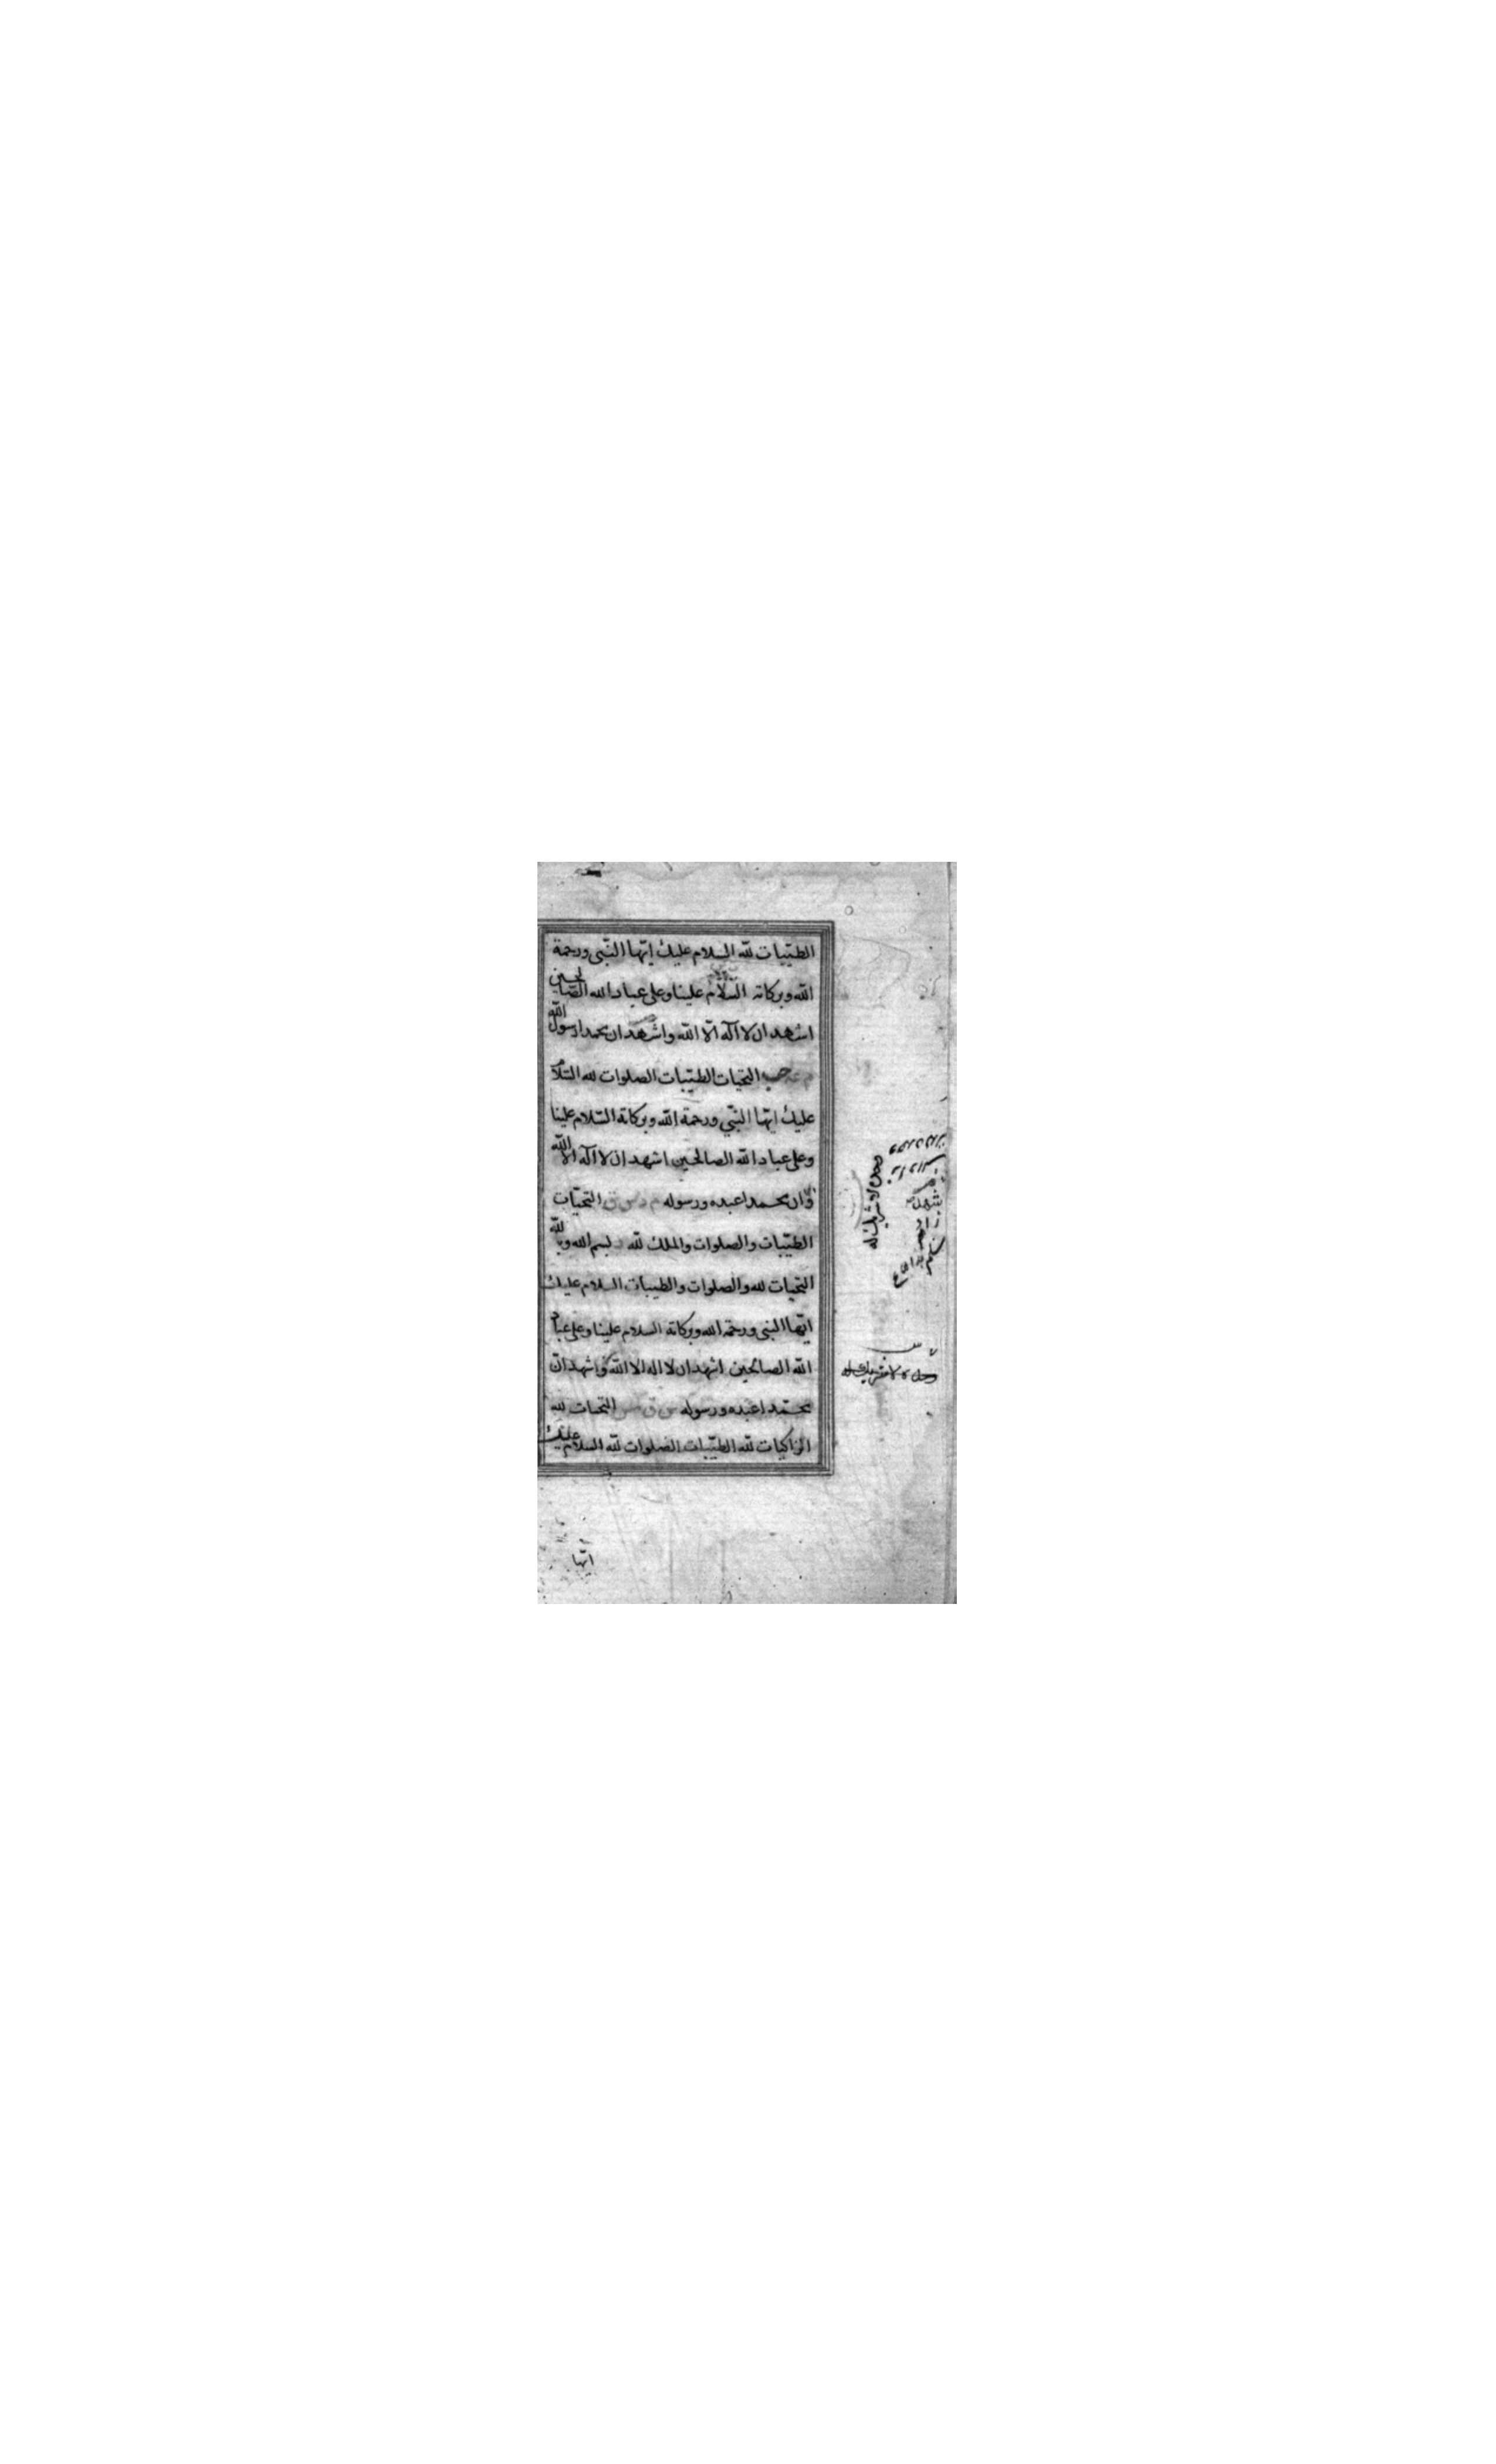 الطيّبات لله السلام عليك ايّها النّبى ورحمة
الله وبركاته السّلام علينا وعلى عباد الله الصّالحين
اشهد ان لا اله الّا الله واشهد ان محمدا رسول الله
م عه حب التحيات الطيّبات الصلوات لله السّلام
عليك ايّها النّبي ورحمة الله وبركاته السّلام علينا
وعلى عباد الله الصالحين اشهد ان لا اله الا الله
وان محمدا عبده ورسوله م د س ق التحيّات
الطيّبات والصلوات والملك لله د بسم الله وبالله
التحيات لله والصلوات والطيبات السلام عليك
ايّها النبى ورحمة الله وبركاته السلام علينا وعلى عباد
الله الصالحين اشهد ان لا اله الا الله واشهد انّ
محمّدا عبده ورسوله س ق مس التحيات لله
الزاكيات لله الطيّبات الصلوات لله السلام عليك
وحده لا شريك له
وحده لا شريك له
ايّها